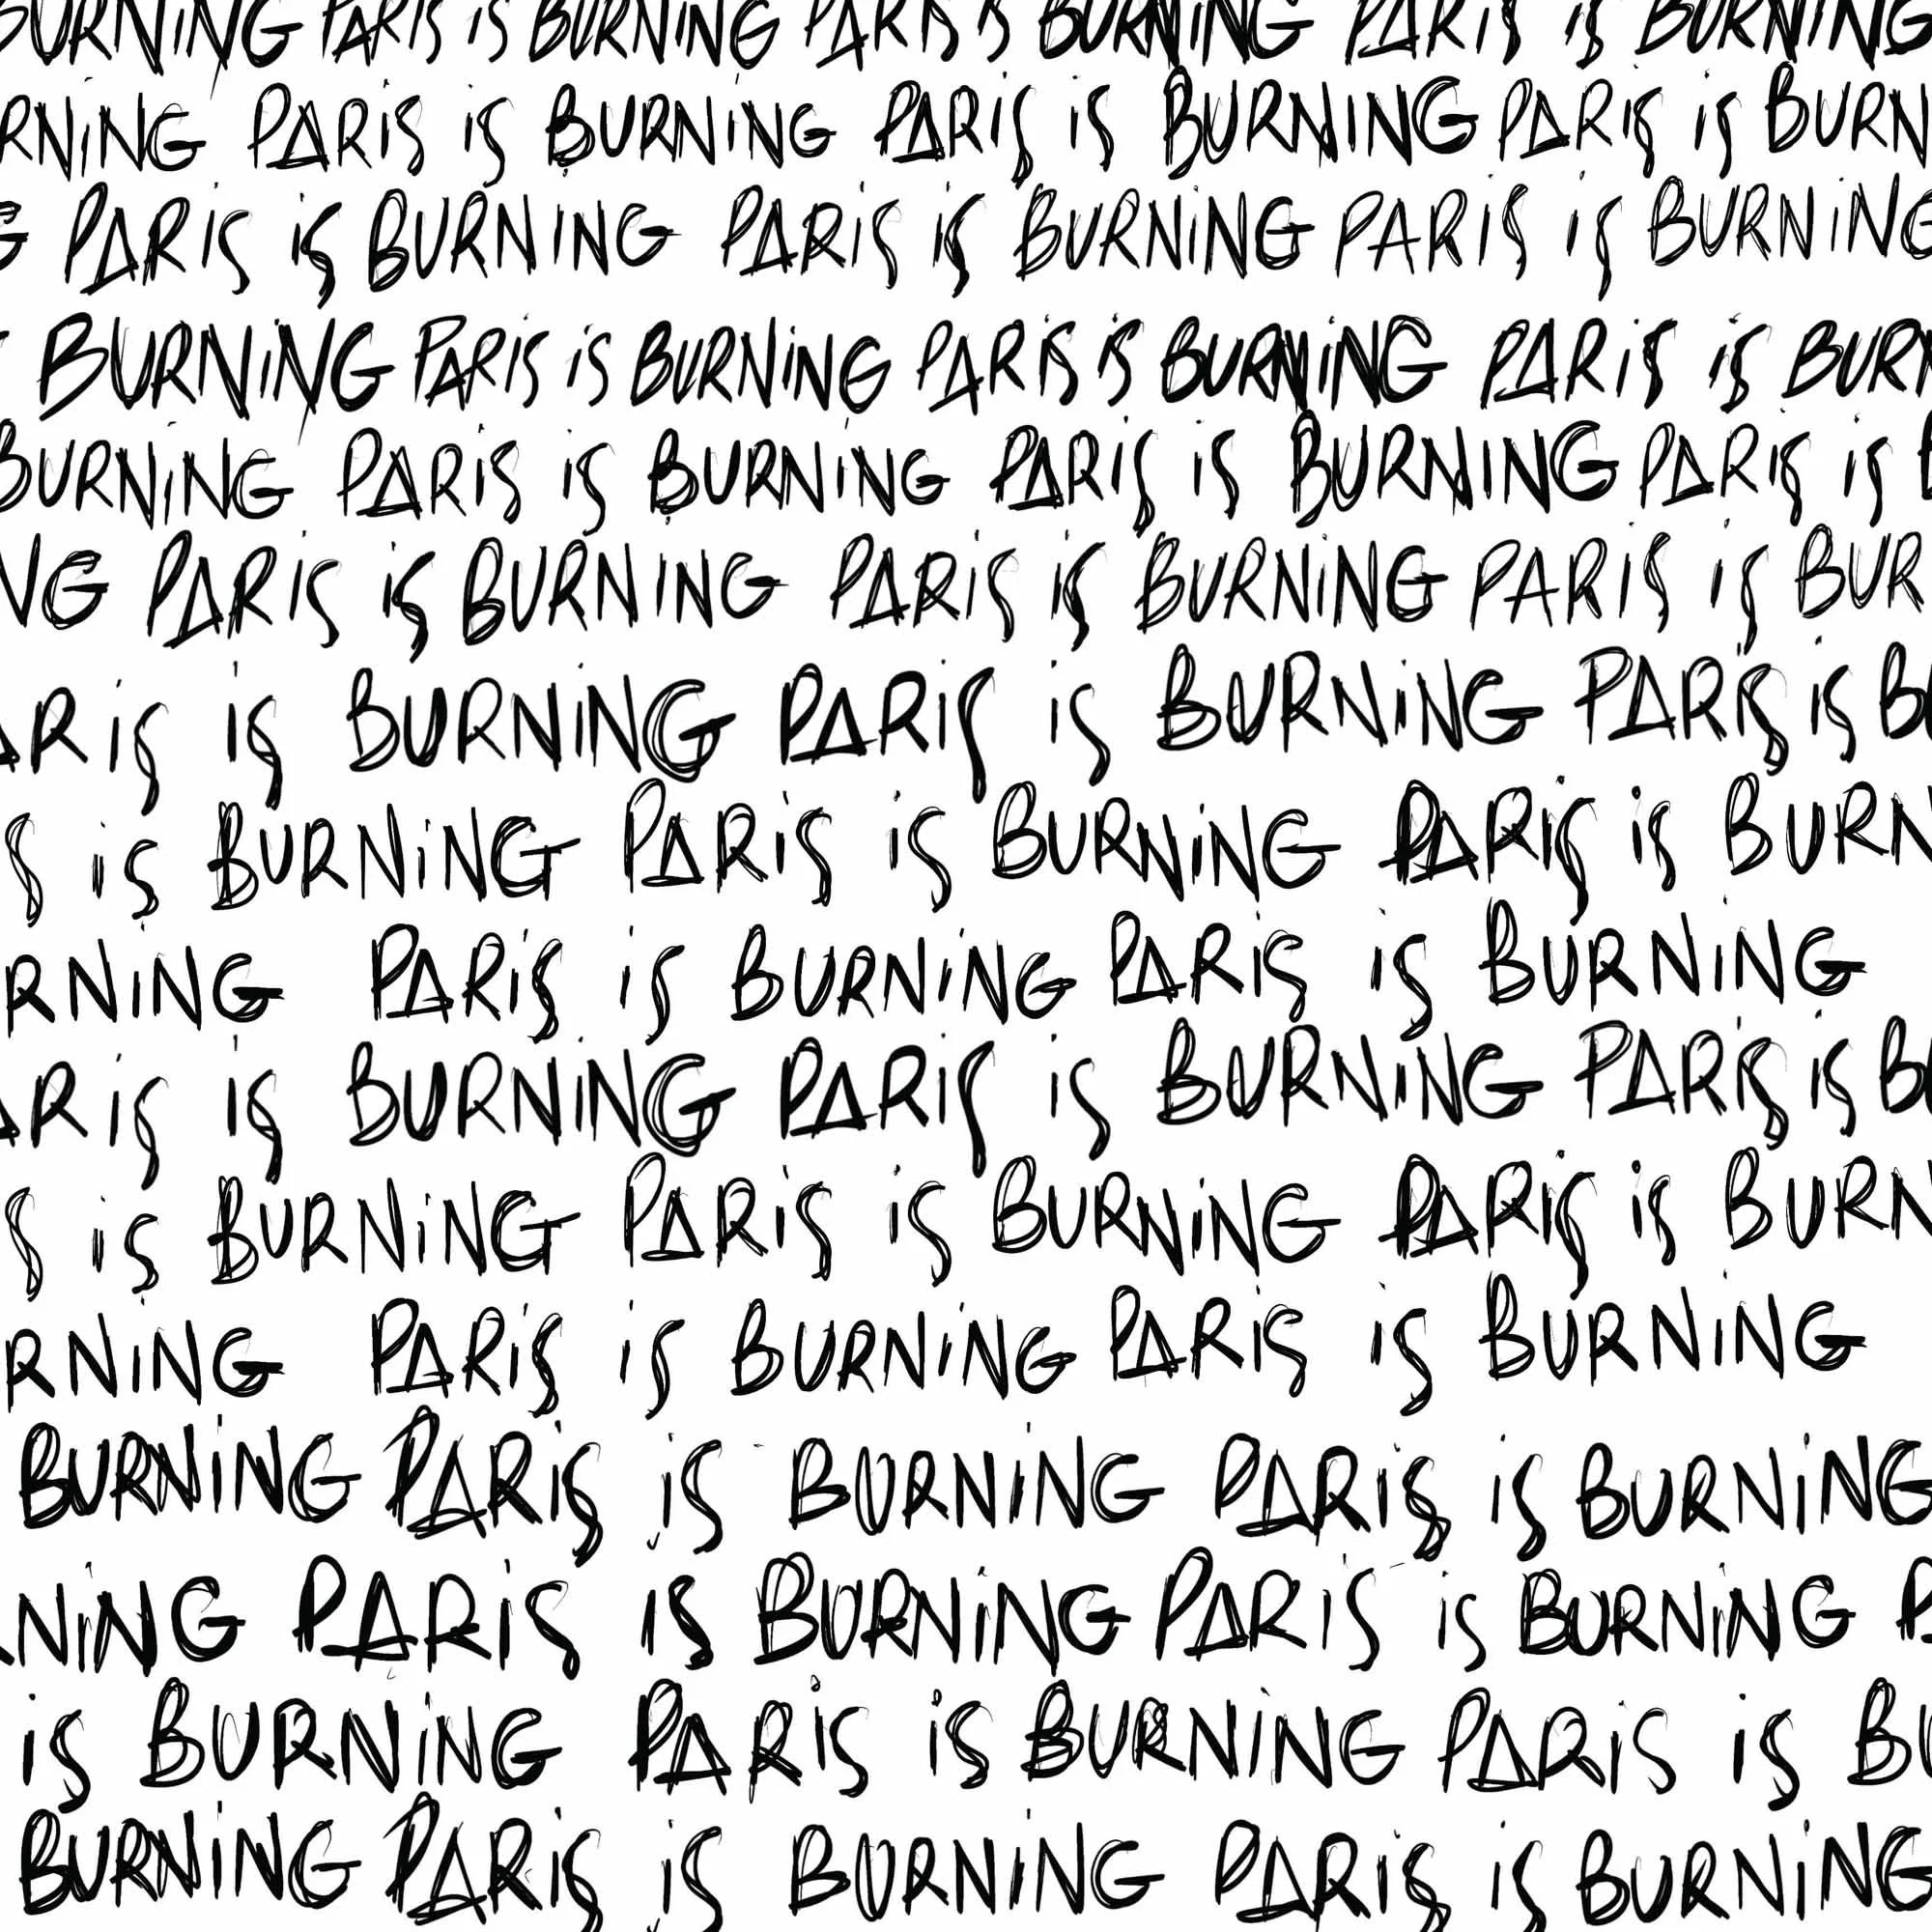 BURNING PARIS IS BURNING PARIS IS BURNING PARIS IS BURNING
RNING PARIS IS BURNING PARIS IS BURNING PARIS IS BURN
G PARIS IS BURNING PARIS IS BURNING PARIS IS BURNING
BURNING PARIS IS BURNING PARIS IS BURNING PARIS IS BURN
BURNING PARIS IS BURNING PARIS IS BURNING PARIS IS B
NG PARIS IS BURNING PARIS IS BURNING PARIS IS BUR
ARIS IS BURNING PARIS IS BURNING PARIS IS BU
S IS BURNING PARIS IS BURNING PARIS IS BURN
RNING PARIS IS BURNING PARIS IS BURNING
ARIS IS BURNING PARIS IS BURNING PARIS IS BU
S IS BURNING PARIS IS BURNING PARIS IS BURN
RNING PARIS IS BURNING PARIS IS BURNING
BURNING PARIS IS BURNING PARIS IS BURNING
NING PARIS IS BURNING PARIS IS BURNING P
IS BURNING PARIS IS BURNING PARIS IS BU
BURNING PARIS IS BURNING PARIS IS BURNING